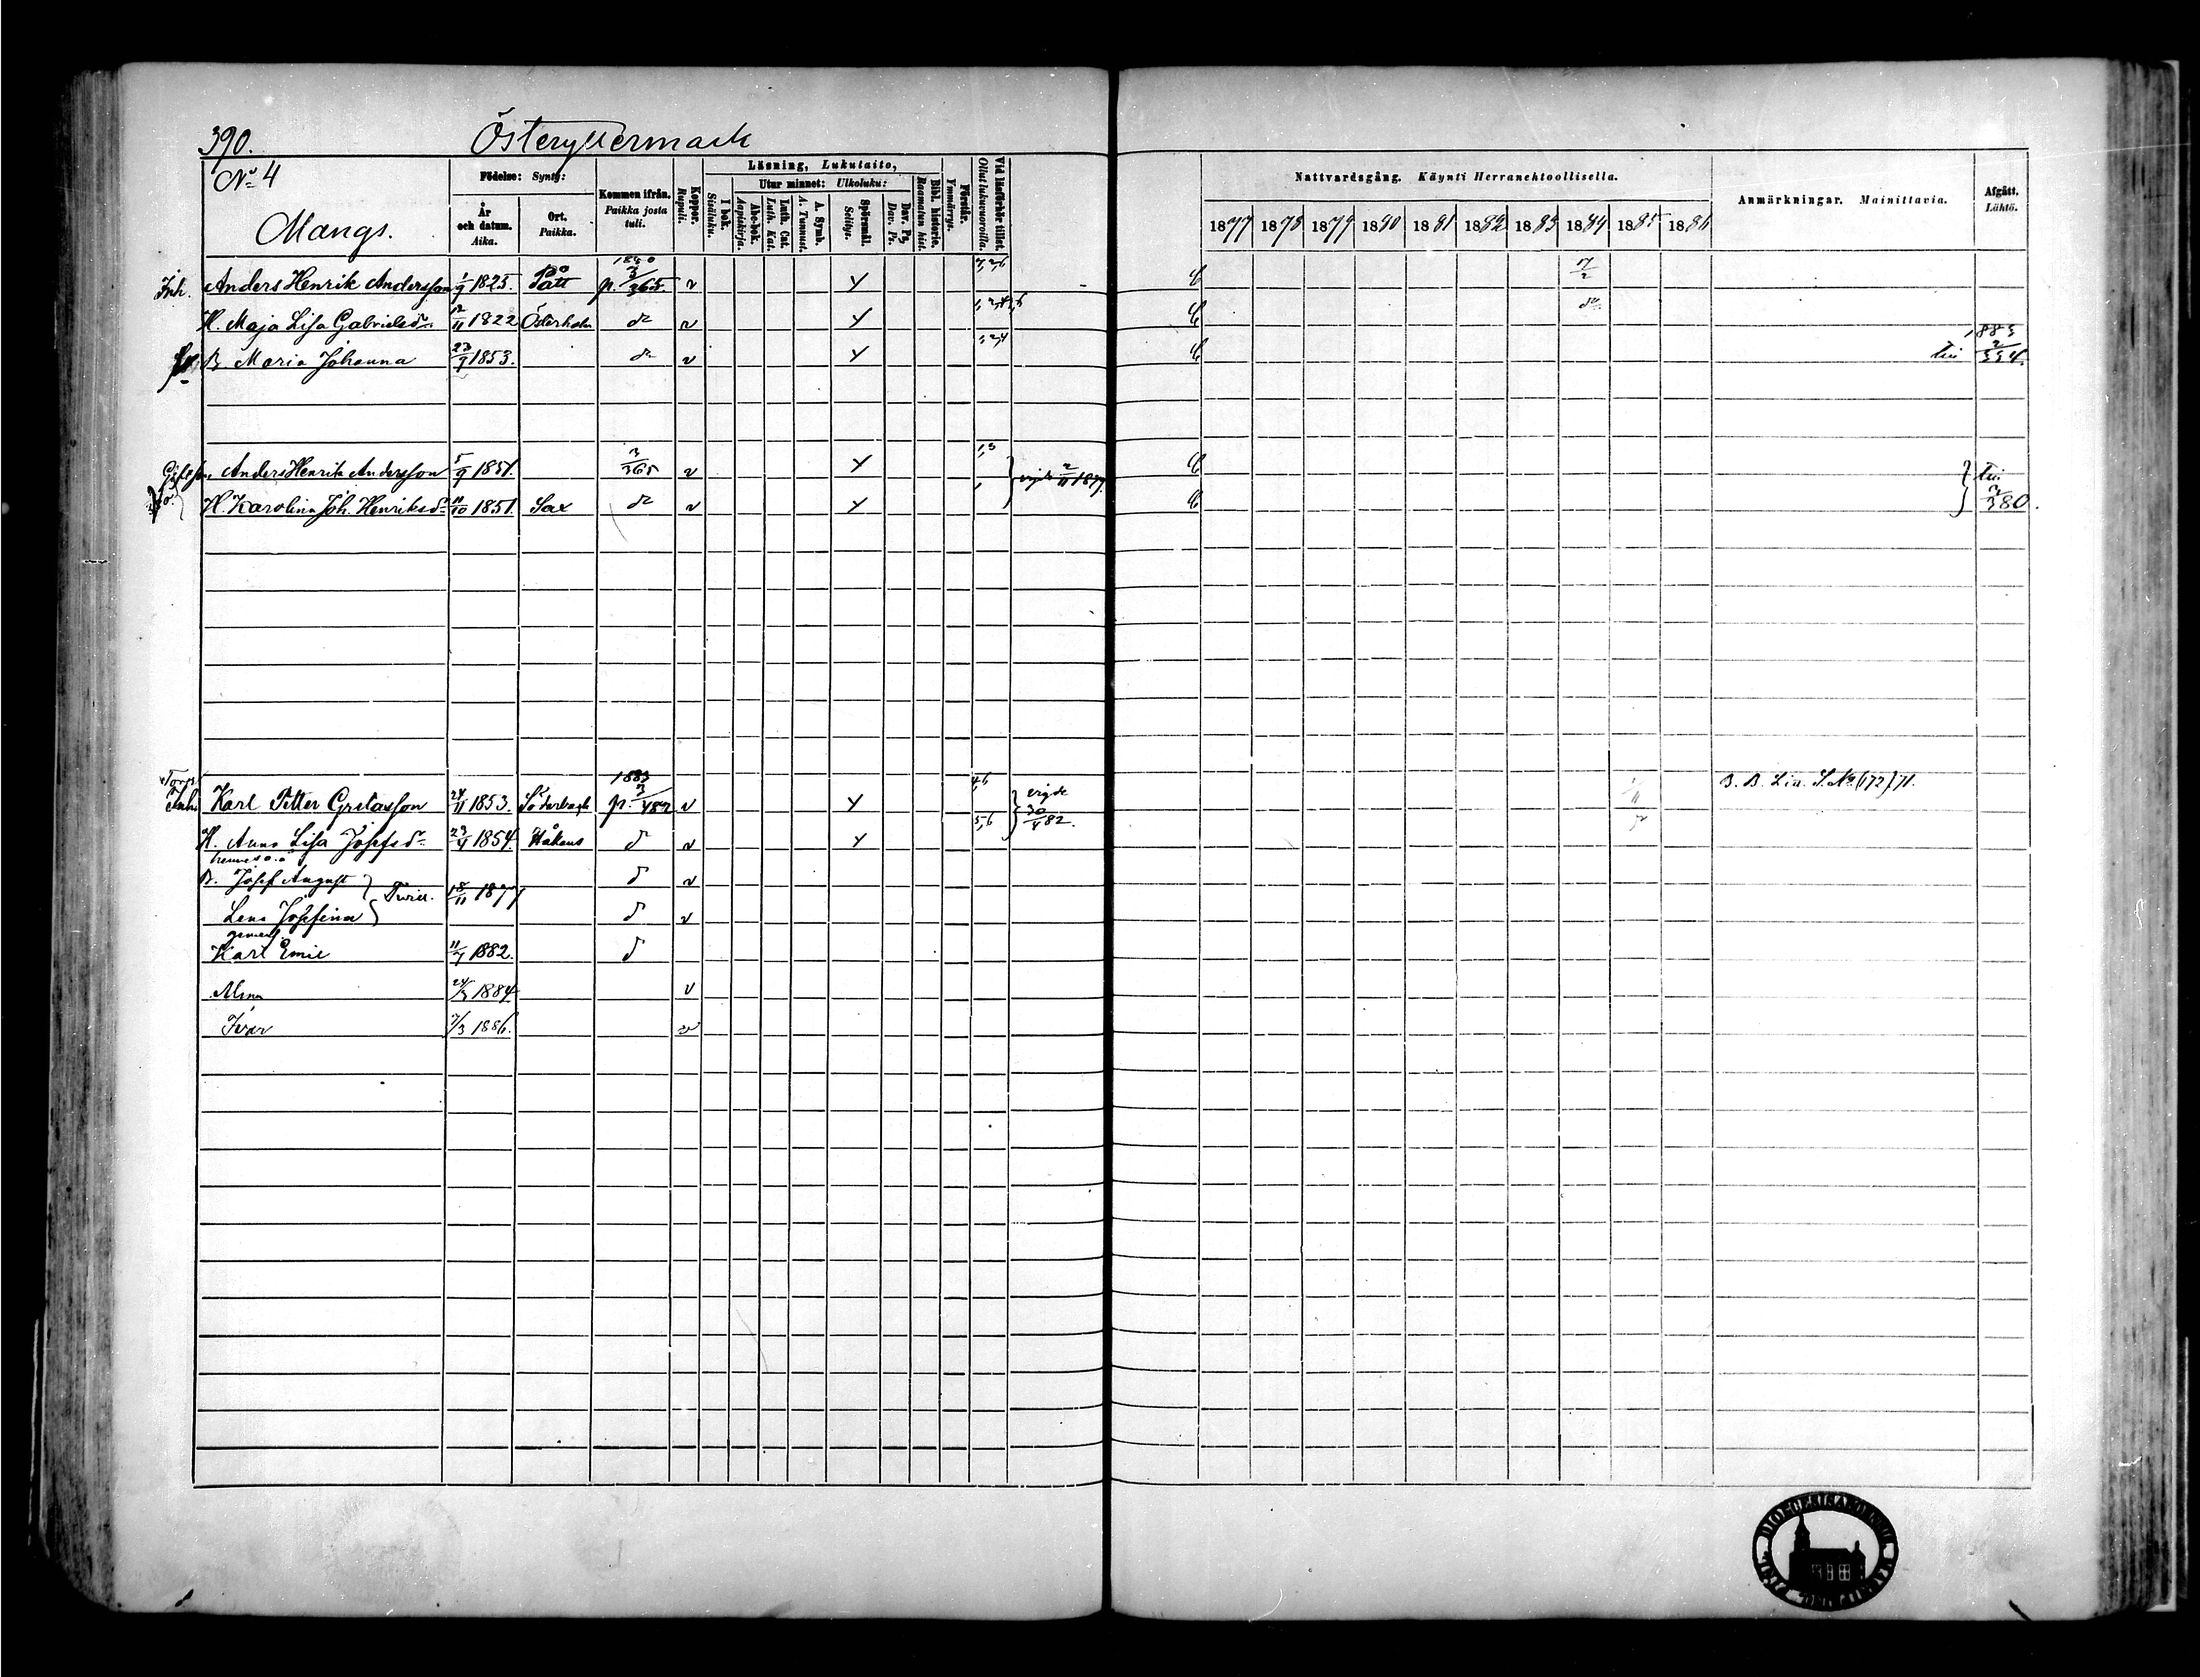 390. Österyttermark
No 4
Mangs.
Födelse: Synty:
År och datum. Aika.
Ort. Paikka.
Kommen ifrån. Paikka josta tuli.
Koppor. Rupuli.
Läsning, Lukutaito,
I bok. Sisäluku.
Utur minnet: Ulkoluku:
Abc-bok. Aapiskirja.
Luth. Cat. Luth. Kat.
A. Symb. A. Tunnust.
Spörsmål. Selitys.
Dav. Ps. Dav. Ps.
Bibl. historie. Raamatun hist.
Förstår. Ymmärrys.
Vid läsförhör tillst. Ollut lukuvuoroilla.
Nattvardsgång. Käynti Herranehtoollisella.
1877 1878 1879 1880 1881 1882 1883 1884 1885 1886
Anmärkningar. Mainittavia.
Afgått. Lähtö.
Inh. Anders Henrik Andersson 1/9 1825. Pått 1880 p. 3/365. v y
H. Maja Lisa Gabrielsdr 12/11 1822 Österholm do v y do
B. Maria Johanna 23/9 1853. do v y 1883 2/354.
Anders Henrik Andersson 5/9 1851. 3/365 v y vigde 2/11 1877.
H. Karolina Joh. Henriksdr 11/10 1851. Sax do v y 3/380.
Torp.
Inh. Karl Petter Gustafsson 24/11 1853. 1883 p. 3/482 v y vigde 30/4 82. B. B. Lia. S. No (172) 71.
H. Anna Lisa Josefsdr 23/4 1854. Håkans d v y
hennes o. ä
B. Josef August d v
Tvill. 15/11 1877
Lena Josefina d v
gemens.
Karl Emil 11/7 1882. d
Alma 24/3 1884 v
Ivar 7/3 1886. v